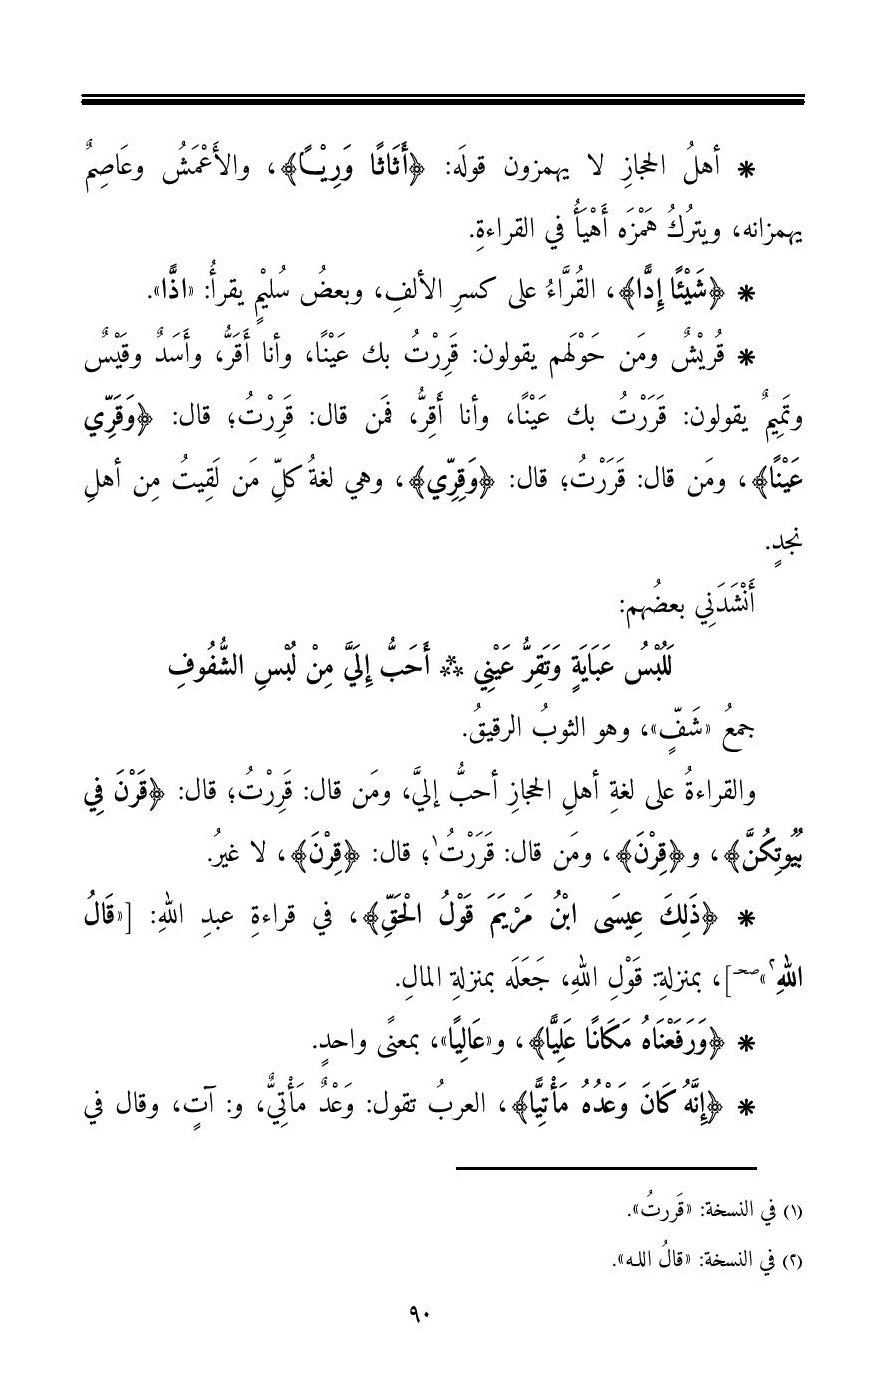 * أهلُ الحجازِ لا يهمزون قولَه: ﴿أَثَاثًا وَرِيْــًا﴾، والأَعْمَشُ وعَاصِمٌ
يهمزانه، ويترُكُ هَمْزَه أَهْيَأُ في القراءةِ.
* ﴿شَيْئًا إِدًّا﴾، القُرَّاءُ على كسرِ الألفِ، وبعضُ سُليْمٍ يقرأُ: «ادًّا».
* قُريْشٌ ومَن حَوْلَهم يقولون: قَرِرْتُ بك عَيْنًا، وأنا أَقَرُّ، وأَسَدٌ وقَيْسٌ
وتَمِيمٌ يقولون: قَرَرْتُ بك عَيْنًا، وأنا أَقِرُّ، فمَن قال: قَرِرْتُ؛ قال: ﴿وَقَرِّي
عَيْنًا﴾، ومَن قال: قَرَرْتُ؛ قال: ﴿وَقِرِّي﴾، وهي لغةُ كلِّ مَن لَقِيتُ مِن أهلِ
نجدٍ.
أَنْشَدَنِي بعضُهم:
لَلُبْسُ عَبَايَةٍ وَتَقِرُّ عَيْنِي ** أَحَبُّ إِلَيَّ مِنْ لُبْسِ الشُّفُوفِ
جمعُ «شَفٍّ»، وهو الثوبُ الرقيقُ.
والقراءةُ على لغةِ أهلِ الحجازِ أحبُّ إليَّ، ومَن قال: قَرِرْتُ؛ قال: ﴿قَرْنَ فِي
بُيُوتِكُنَّ﴾، و﴿قِرْنَ﴾، ومَن قال: قَرَرْتُ١؛ قال: ﴿قِرْنَ﴾، لا غيرُ.
* ﴿ذَلِكَ عِيسَى ابْنُ مَرْيَمَ قَوْلُ الْحَقِّ﴾، في قراءةِ عبدِ اللهِ: [«قَالُ
اللهِ٢» صحـ]، بمنزلةِ: قَوْلِ اللهِ، جَعَلَه بمنزلةِ المالِ.
* ﴿وَرَفَعْنَاهُ مَكَانًا عَلِيًّا﴾، و«عَالِيًا»، بمعنًى واحدٍ.
* ﴿إِنَّهُ كَانَ وَعْدُهُ مَأْتِيًّا﴾، العربُ تقول: وَعْدٌ مَأْتِيٌّ، و: آتٍ، وقال في
(١) في النسخة: «قَررتُ».
(٢) في النسخة: «قالُ اللـه».
٩٠